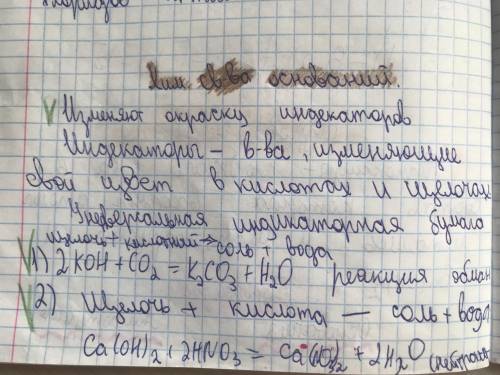 Хим св-ва оснований.
Изменяют окраску индекаторов
Индекаторы – в-ва, изменяющие
свой цвет в кислотах и щелочах
Универсальная индикаторная бумага
щелочь + кислотный → соль + вода
1) 2KOH + CO₂ = K₂CO₃ + H₂O реакция обмен
2) Щелочь + кислота — соль + вода
Ca(OH)₂ + 2HNO₃ = Ca(NO₃)₂ + 2H₂O